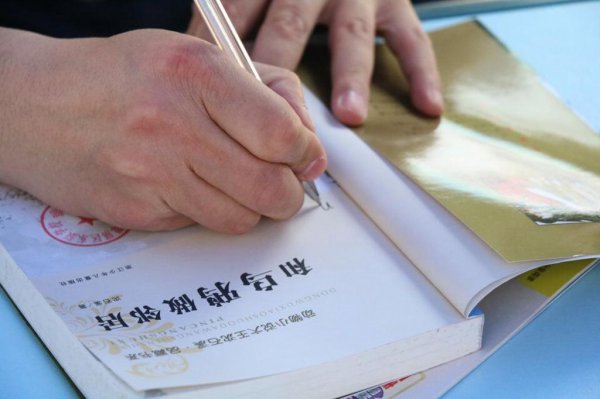 动物小说大王沈石溪
品藏书系
DONGWUXIAOSHUODAWANGSHENSHIXI
PINCANGSHUXI
和乌鸦做邻居
沈石溪 著
浙江少年儿童出版社